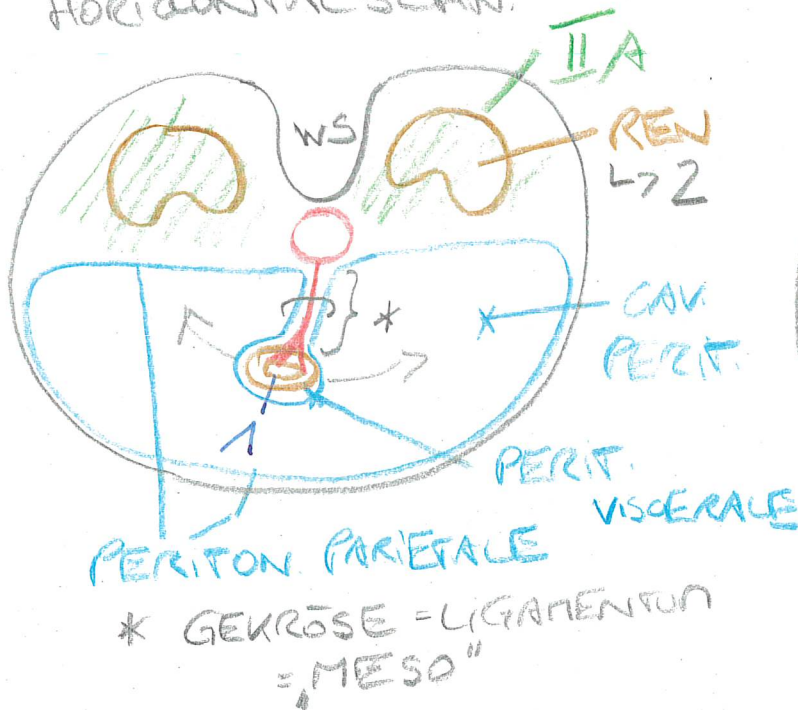 HORIZONTALSCHN.
II A
WS
REN
↳ 2
*
CAV.
PERIT.
1
PERIT.
VISCERALE
PERITON. PARIETALE
* GEKRÖSE = LIGAMENTUM
= „MESO"